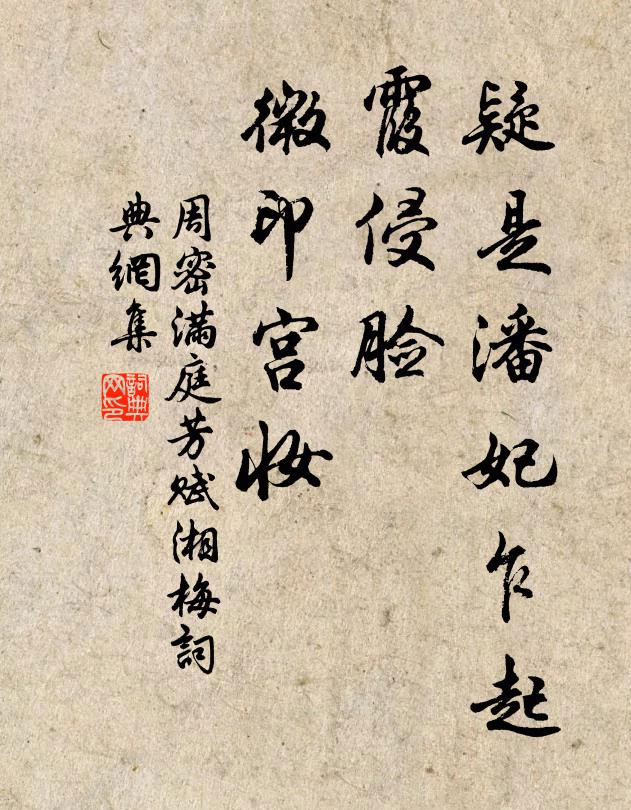 疑是潘妃乍起
霞侵脸
微印宫妆
周密满庭芳赋湘梅詞
典網集
詞典網印